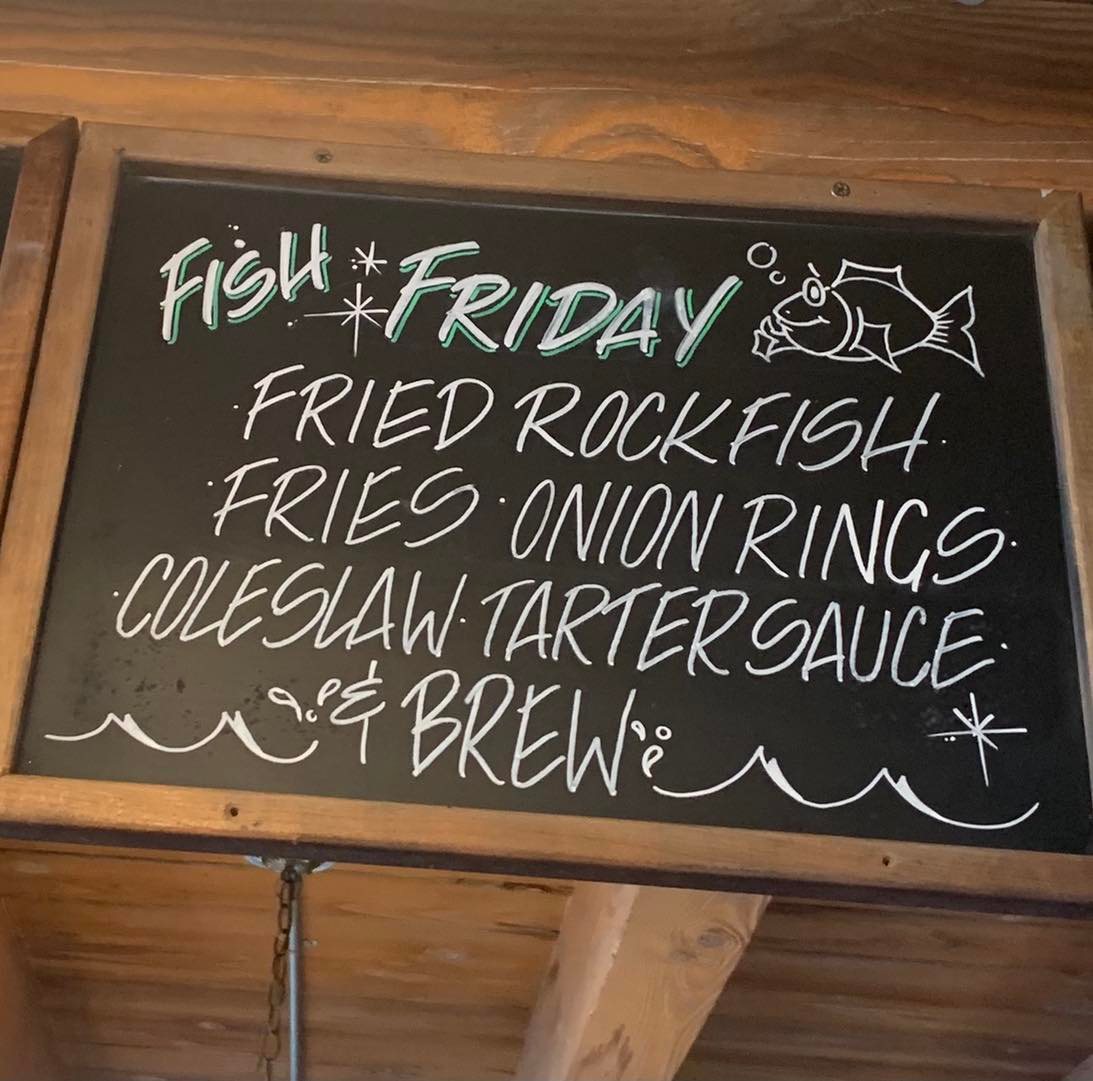 FISH FRIDAY
·FRIED ROCKFISH·
·FRIES·ONION RINGS·
·COLESLAW·TARTER SAUCE·
& BREW